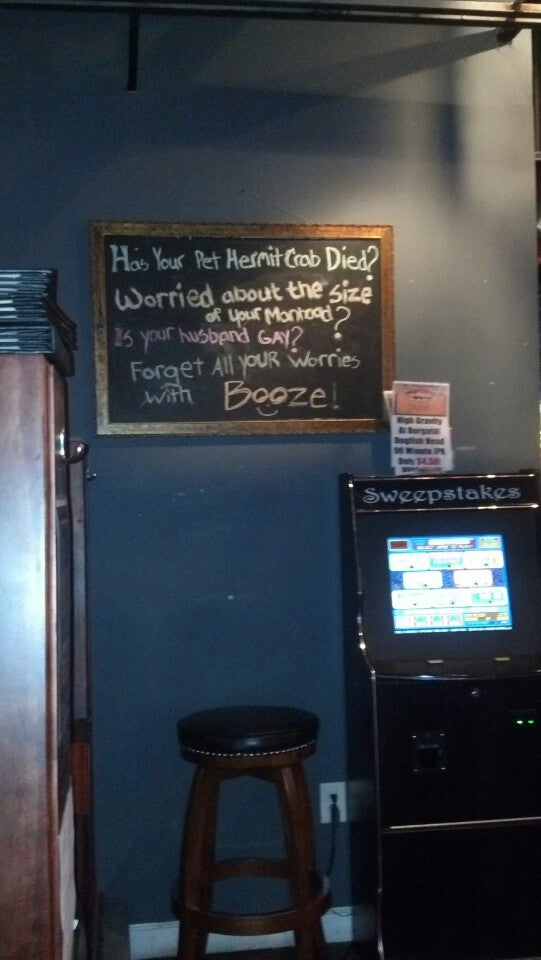 Has Your Pet Hermit Crab Died?
Worried about the Size
of your Manhood?
Is your husband GAY?
Forget All YOUR Worries
with Booze!
High Gravity
At Burgatai
Dogfish Head
90 Minute IPA
Only $4.50!
Sweepstakes